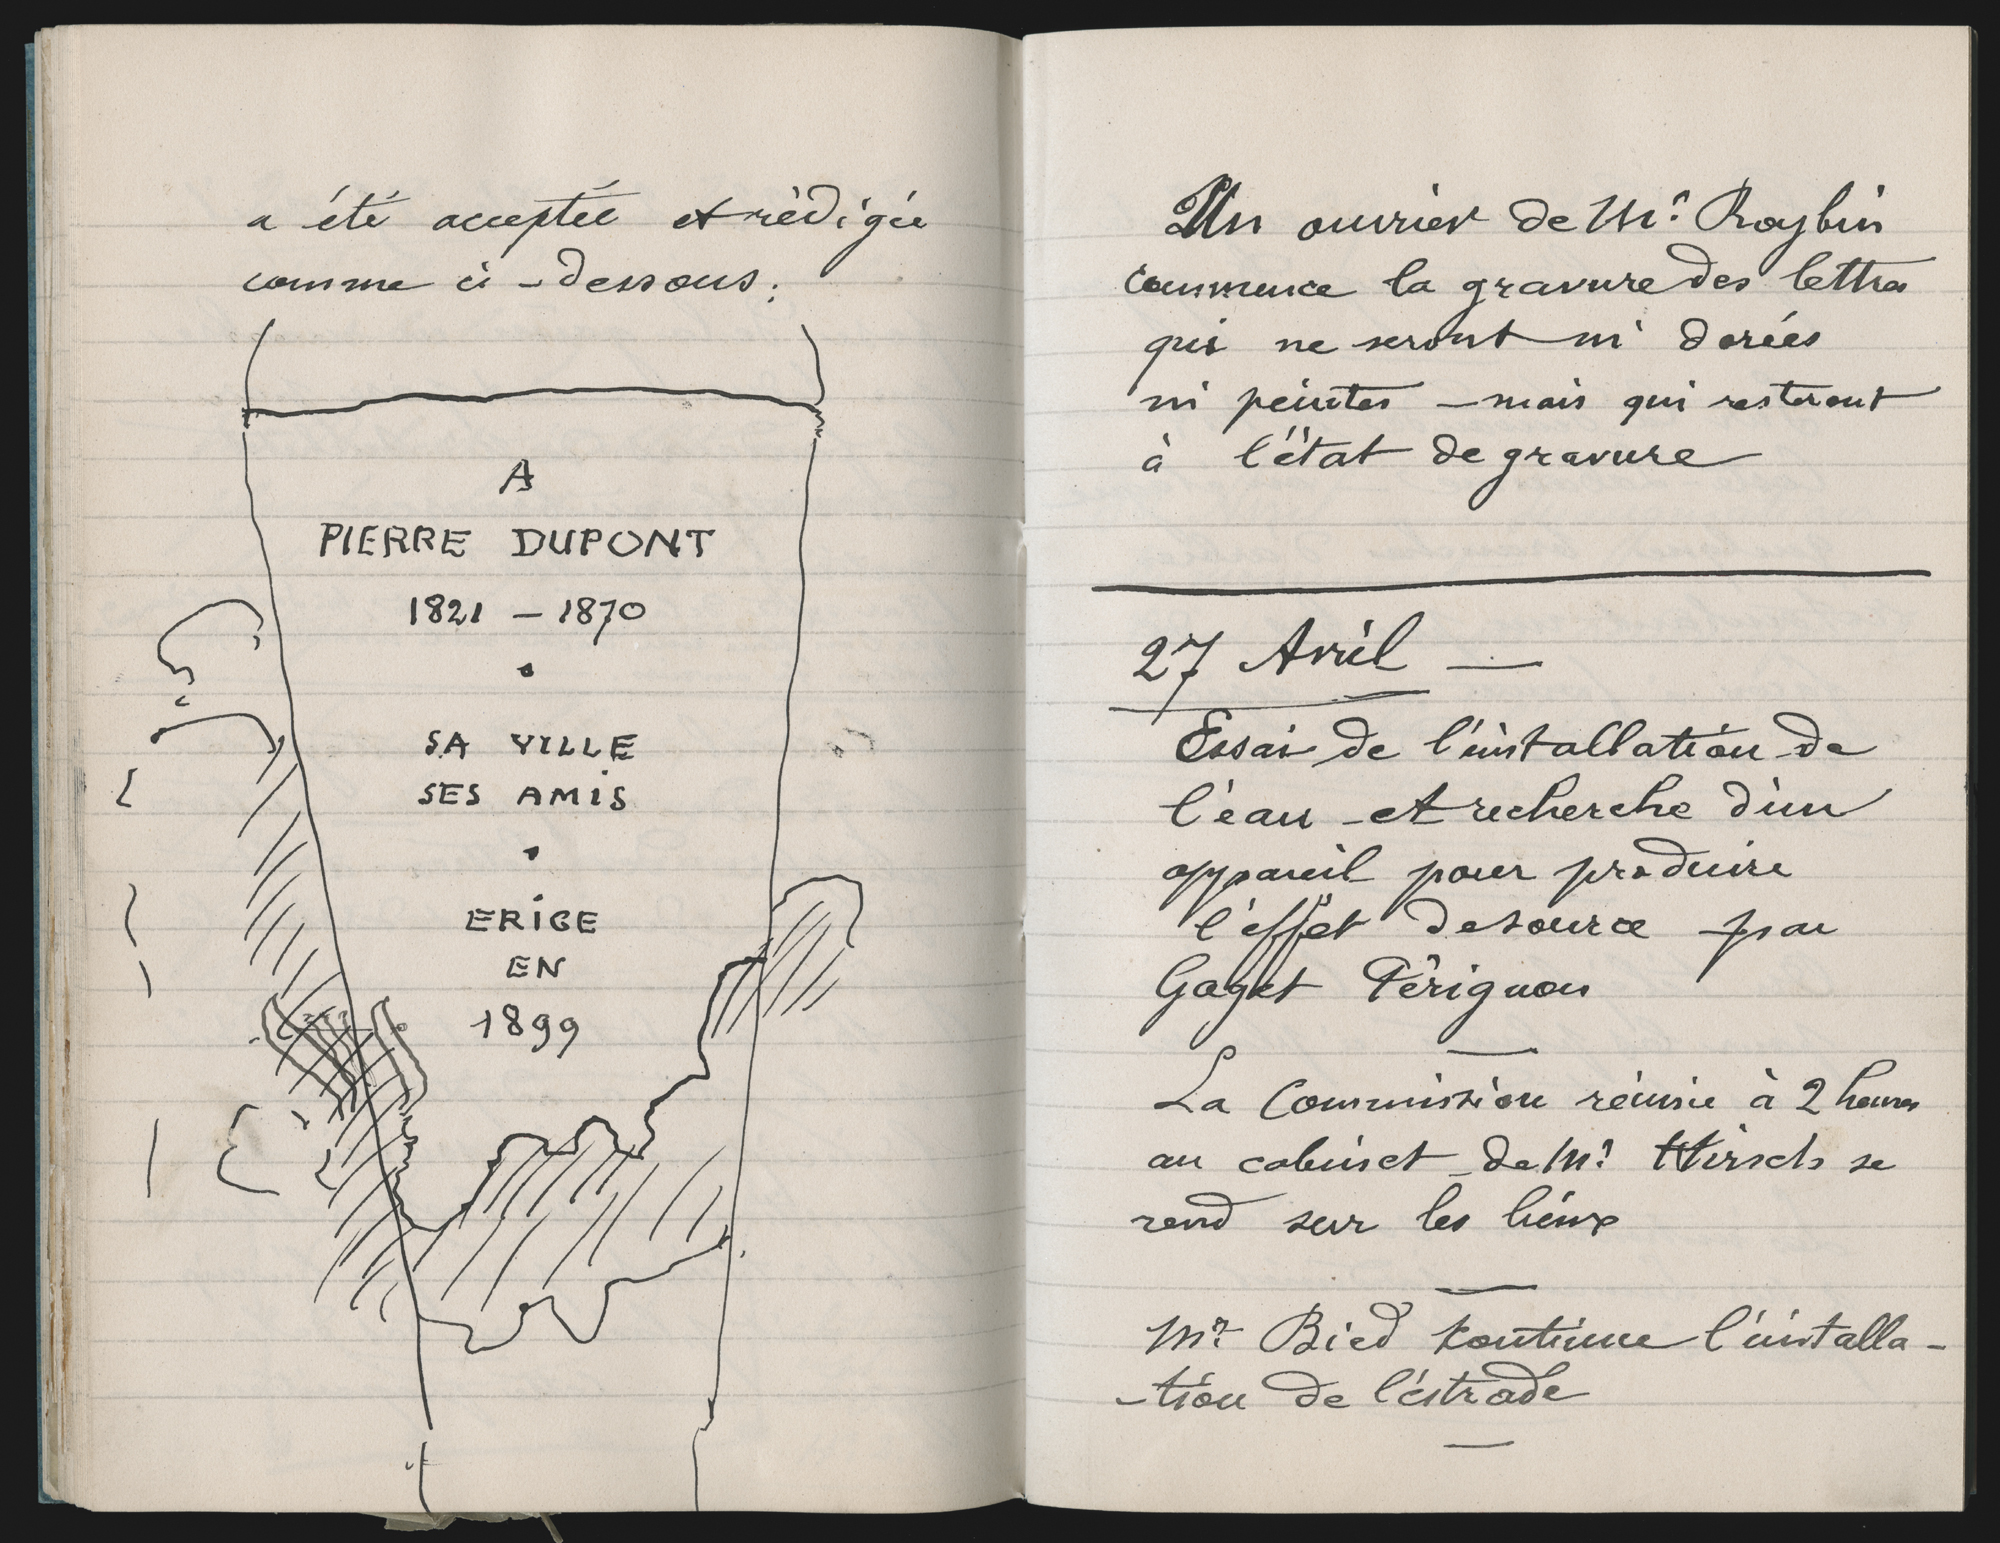 a été acceptée et rédigée
comme ci-dessous:
A
PIERRE DUPONT
1821 – 1870
•
SA VILLE
SES AMIS
•
ERIGE
EN
1899
Un ouvrier de Mr. Roybin
commence la gravure des lettres
qui ne seront ni dorées
ni peintes – mais qui resteront
à l'état de gravure
27 Avril –
Essai de l'installation de
l'eau – et recherche d'un
appareil pour produire
l'effet de source par
Gaget Pérignon
La Commission réunie à 2 heures
au cabinet de Mr. Hirsch se
rend sur les lieux
Mr. Bied continue l'installa-
-tion de l'estrade